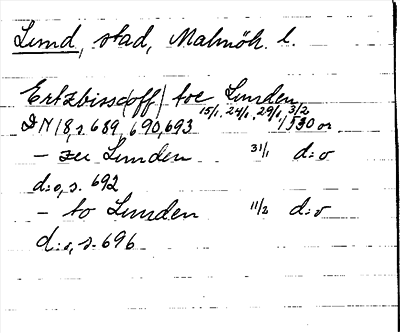 Lund, stad, Malmöh. l.
Ertzbissc(off) toe Lunden
15/1, 24/1, 29/1, 3/2
DN 8, s. 689, 690, 693 1530 or.
– zu Lunden 31/1 d:o
d:o, s. 692
– to Lunden 11/2 d:o
d:o, s. 696